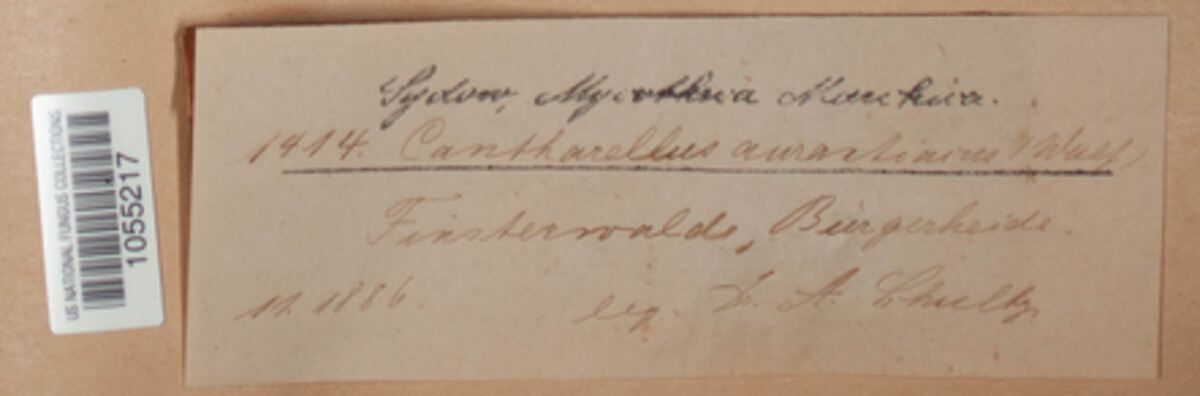 Sydow, Mycotheca Marchica.
1414. Cantharellus aurantiacus (Wulf)
Finsterwalde, Bürgerheide.
11. 1886.
leg. Dr. A. Schultz
US NATIONAL FUNGUS COLLECTIONS
1055217